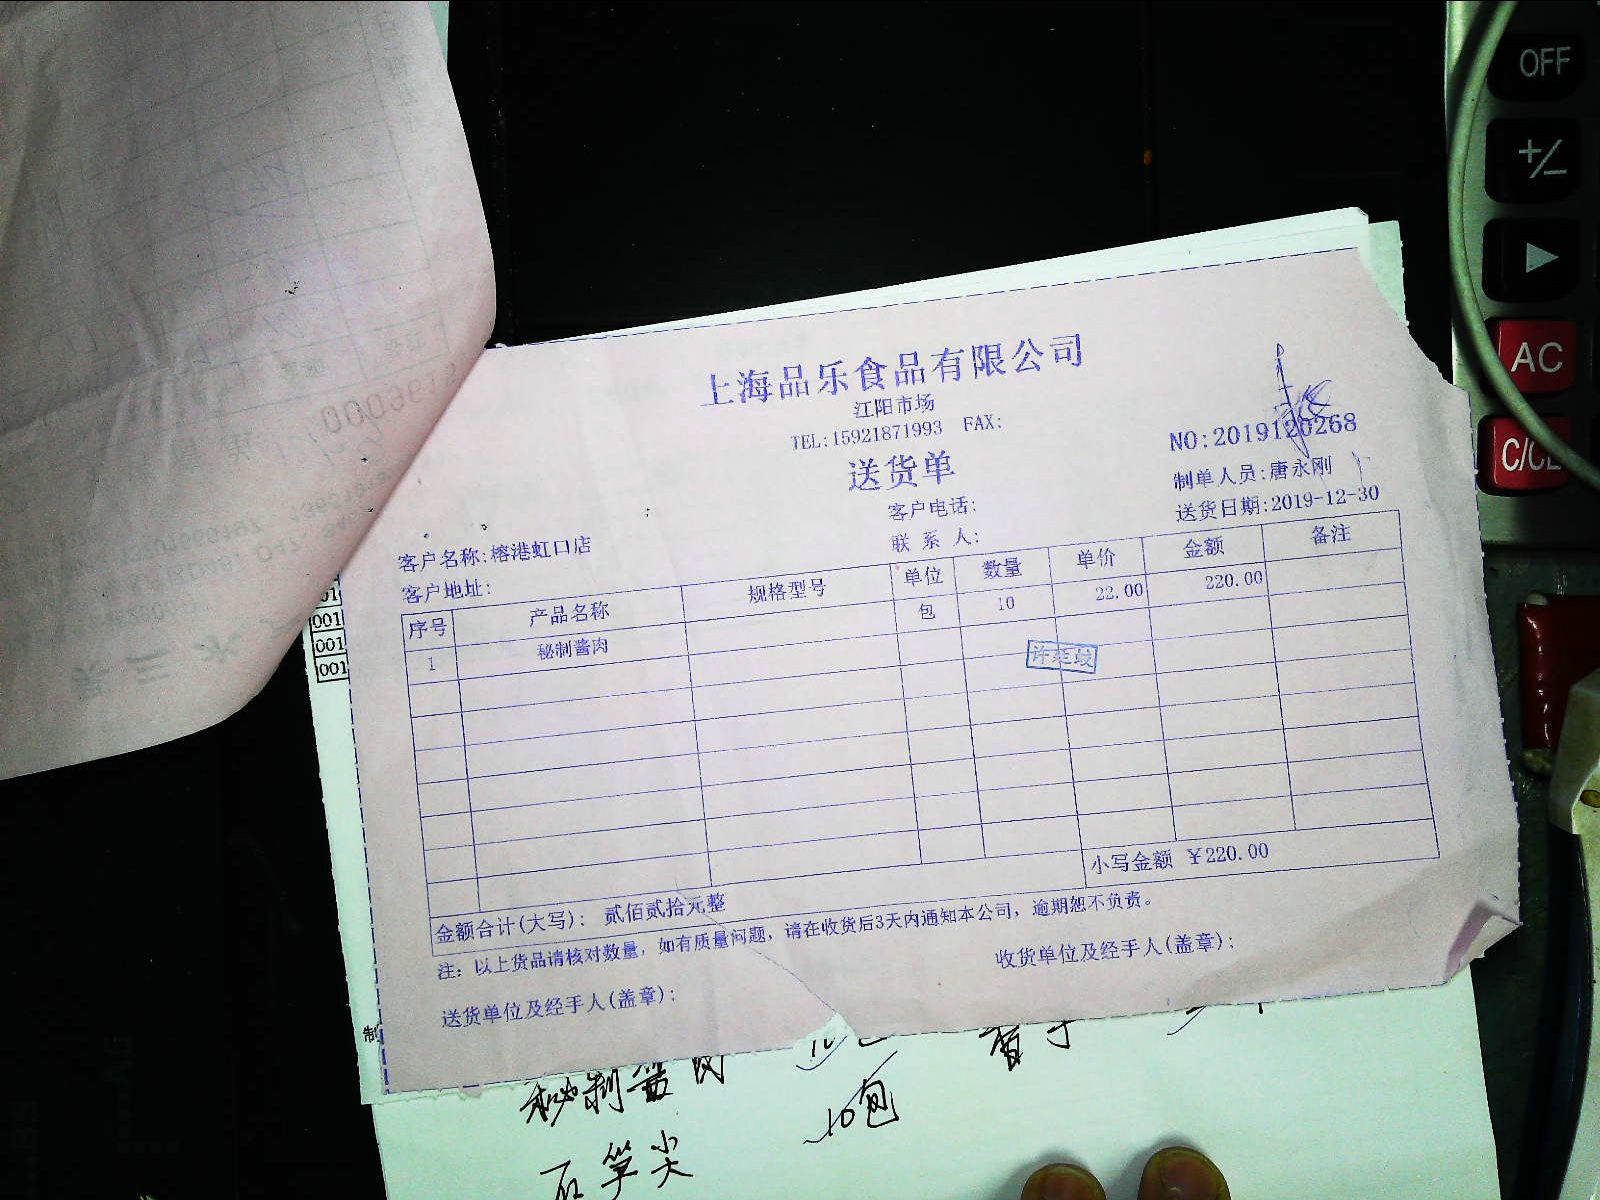 上海品乐食品有限公司
江阳市场
TEL:15921871993 FAX:
送货单
NO:2019120268
制单人员:唐永刚
客户电话:
送货日期:2019-12-30
客户名称:榕港虹口店
联 系 人:
客户地址:
序号 产品名称 规格型号 单位 数量 单价 金额 备注
1 秘制酱肉 包 10 22.00 220.00
金额合计(大写): 贰佰贰拾元整 小写金额 ¥220.00
注: 以上货品请核对数量, 如有质量问题, 请在收货后3天内通知本公司, 逾期恕不负责。
送货单位及经手人(盖章):
收货单位及经手人(盖章):
001
001
001
制
秘制酱肉
10包
石笋尖
OFF
+/-
▶
AC
C/CE